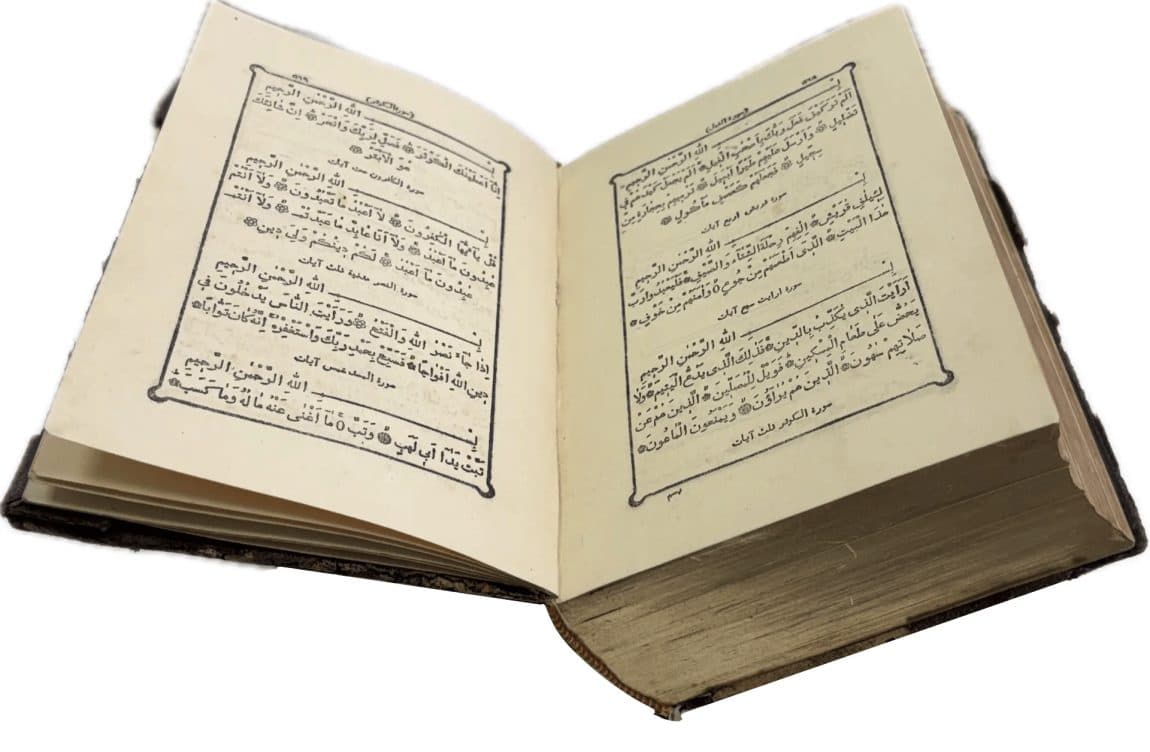 ٥٦٨
(سورة الفيل)
بِسْمِ اللهِ الرَّحْمٰنِ الرَّحِيمِ
أَلَمْ تَرَ كَيْفَ فَعَلَ رَبُّكَ بِأَصْحٰبِ الْفِيلِ۞ أَلَمْ يَجْعَلْ كَيْدَهُمْ فِي
تَضْلِيلٍ۞ وَأَرْسَلَ عَلَيْهِمْ طَيْرًا أَبَابِيلَ۞ تَرْمِيهِمْ بِحِجَارَةٍ مِنْ
سِجِّيلٍ۞ فَجَعَلَهُمْ كَعَصْفٍ مَأْكُولٍ۞
سورة قريش اربع آيات
بِسْمِ اللهِ الرَّحْمٰنِ الرَّحِيمِ
لِإِيلٰفِ قُرَيْشٍ۞ إِلٰفِهِمْ رِحْلَةَ الشِّتَاءِ وَالصَّيْفِ۞ فَلْيَعْبُدُوا رَبَّ
هٰذَا الْبَيْتِ۞ الَّذِي أَطْعَمَهُمْ مِنْ جُوعٍ ٥ وَآمَنَهُمْ مِنْ خَوْفٍ۞
سورة ارايت سبع آيات
بِسْمِ اللهِ الرَّحْمٰنِ الرَّحِيمِ
أَرَأَيْتَ الَّذِي يُكَذِّبُ بِالدِّينِ۞ فَذٰلِكَ الَّذِي يَدُعُّ الْيَتِيمَ۞ وَلَا
يَحُضُّ عَلَى طَعَامِ الْمِسْكِينِ۞ فَوَيْلٌ لِلْمُصَلِّينَ۞ الَّذِينَ هُمْ عَنْ
صَلَاتِهِمْ سَاهُونَ۞ الَّذِينَ هُمْ يُرَاؤُنَ۞ وَيَمْنَعُونَ الْمَاعُونَ۞
سورة الكوثر ثلث آيات
بسم
٥٦٩
(سورة الكوثر)
بِسْمِ اللهِ الرَّحْمٰنِ الرَّحِيمِ
إِنَّا أَعْطَيْنٰكَ الْكَوْثَرَ۞ فَصَلِّ لِرَبِّكَ وَانْحَرْ۞ إِنَّ شَانِئَكَ
هُوَ الْأَبْتَرُ۞
سورة الكافرون ست آيات
بِسْمِ اللهِ الرَّحْمٰنِ الرَّحِيمِ
قُلْ يٰأَيُّهَا الْكٰفِرُونَ۞ لَا أَعْبُدُ مَا تَعْبُدُونَ۞ وَلَا أَنْتُمْ
عٰبِدُونَ مَا أَعْبُدُ۞ وَلَا أَنَا عَابِدٌ مَا عَبَدْتُمْ۞ وَلَا أَنْتُمْ
عٰبِدُونَ مَا أَعْبُدُ۞ لَكُمْ دِينُكُمْ وَلِيَ دِينِ۞
سورة النصر مدنية ثلث آيات
بِسْمِ اللهِ الرَّحْمٰنِ الرَّحِيمِ
إِذَا جَاءَ نَصْرُ اللهِ وَالْفَتْحُ۞ وَرَأَيْتَ النَّاسَ يَدْخُلُونَ فِي
دِينِ اللهِ أَفْوَاجًا۞ فَسَبِّحْ بِحَمْدِ رَبِّكَ وَاسْتَغْفِرْهُ إِنَّهُ كَانَ تَوَّابًا۞
سورة المسد خمس آيات
بِسْمِ اللهِ الرَّحْمٰنِ الرَّحِيمِ
تَبَّتْ يَدَا أَبِي لَهَبٍ۞ وَتَبَّ ٥ مَا أَغْنَى عَنْهُ مَالُهُ وَمَا كَسَبَ۞